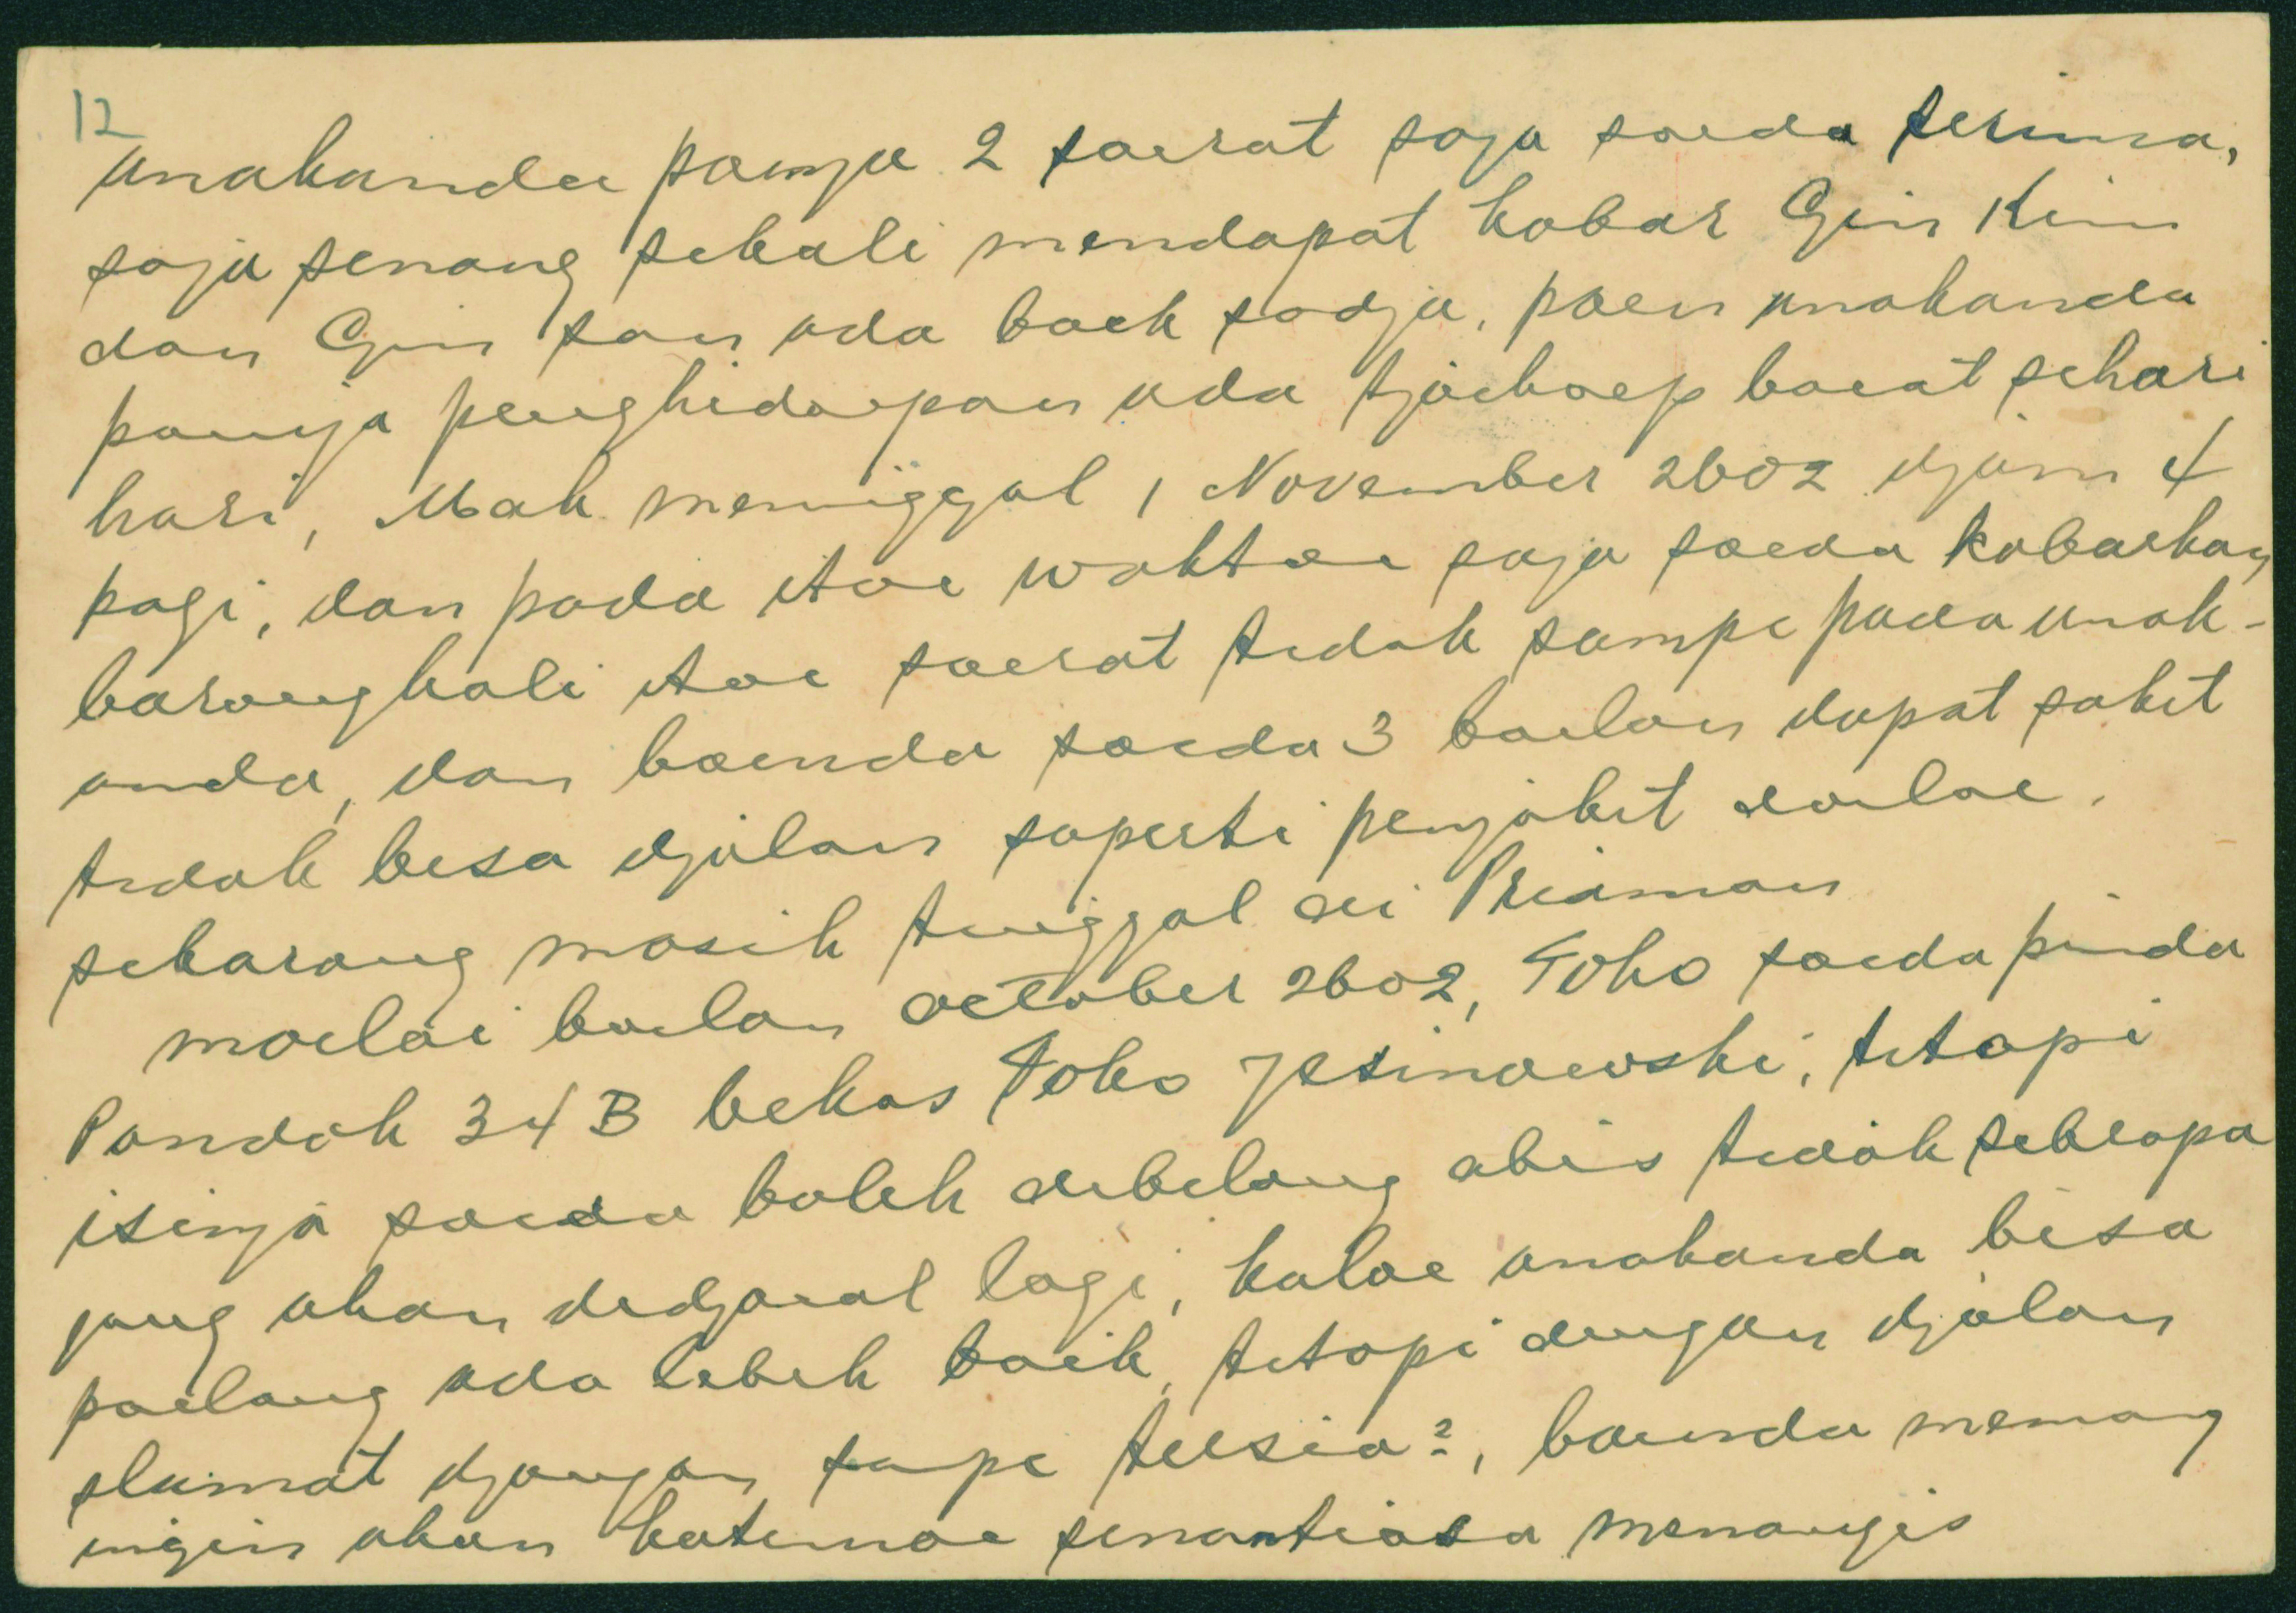 12
anakanda poenja 2 soerat saja soeda terima,
saja senang sekali mendapat kabar Gin Kim
dan Gin San ada baek sadja, poen anakanda
poenja penghidoepan ada tjoekoep boeat sehari
hari, Mak meninggal 1 November 2602 djam 4
pagi, dan pada itoe waktoe saja soeda kabarkan
barangkali itoe soerat tidak sampe pada anak-
anda, dan boenda soeda 3 boelan dapat sakit
tidak bisa djalan saperti penjakit doeloe.
sekarang masih tinggal di Priaman
moelai boelan October 2602, Toko soeda pinda
Pondok 34 B bekas Toko Jesinowski, tetapi
isinja soeda boleh dibilang abis tidak sebrapa
jang akan didjoeal lagi, kaloe anakanda bisa
poelang ada lebih baik, tetapi dengan djalan
slamat djangan sampe tersia2, boenda memang
ingin akan katemoe senantiasa menangis